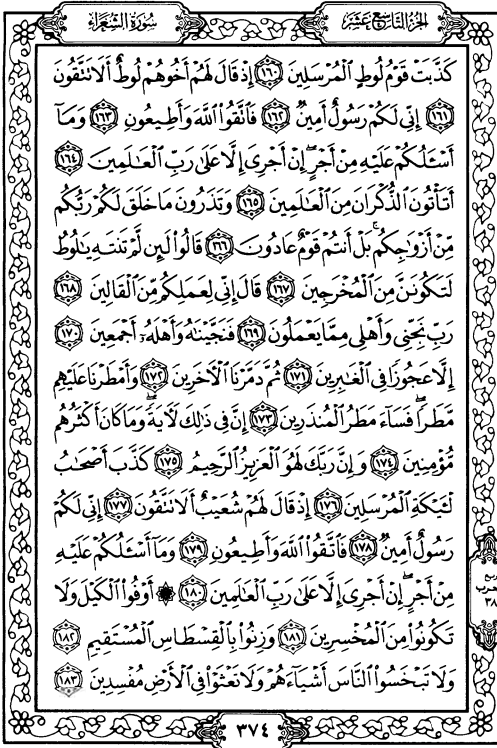 سُورَةُ الشُّعَرَاءِ
الجُزْءُ التَّاسِعَ عَشَرَ
كَذَّبَتْ قَوْمُ لُوطٍ ٱلْمُرْسَلِينَ ١٦٠ إِذْ قَالَ لَهُمْ أَخُوهُمْ لُوطٌ أَلَا تَتَّقُونَ
١٦١ إِنِّي لَكُمْ رَسُولٌ أَمِينٌ ١٦٢ فَٱتَّقُوا۟ ٱللَّهَ وَأَطِيعُونِ ١٦٣ وَمَآ
أَسْـَٔلُكُمْ عَلَيْهِ مِنْ أَجْرٍ ۖ إِنْ أَجْرِىَ إِلَّا عَلَىٰ رَبِّ ٱلْعَـٰلَمِينَ ١٦٤
أَتَأْتُونَ ٱلذُّكْرَانَ مِنَ ٱلْعَـٰلَمِينَ ١٦٥ وَتَذَرُونَ مَا خَلَقَ لَكُمْ رَبُّكُم
مِّنْ أَزْوَٰجِكُم ۚ بَلْ أَنتُمْ قَوْمٌ عَادُونَ ١٦٦ قَالُوا۟ لَئِن لَّمْ تَنتَهِ يَـٰلُوطُ
لَتَكُونَنَّ مِنَ ٱلْمُخْرَجِينَ ١٦٧ قَالَ إِنِّى لِعَمَلِكُم مِّنَ ٱلْقَالِينَ ١٦٨
رَبِّ نَجِّنِى وَأَهْلِى مِمَّا يَعْمَلُونَ ١٦٩ فَنَجَّيْنَـٰهُ وَأَهْلَهُۥٓ أَجْمَعِينَ ١٧٠
إِلَّا عَجُوزًا فِى ٱلْغَـٰبِرِينَ ١٧١ ثُمَّ دَمَّرْنَا ٱلْـَٔاخَرِينَ ١٧٢ وَأَمْطَرْنَا عَلَيْهِم
مَّطَرًا ۖ فَسَآءَ مَطَرُ ٱلْمُنذَرِينَ ١٧٣ إِنَّ فِى ذَٰلِكَ لَـَٔايَةً ۖ وَمَا كَانَ أَكْثَرُهُم
مُّؤْمِنِينَ ١٧٤ وَإِنَّ رَبَّكَ لَهُوَ ٱلْعَزِيزُ ٱلرَّحِيمُ ١٧٥ كَذَّبَ أَصْحَـٰبُ
لْـَٔيْكَةِ ٱلْمُرْسَلِينَ ١٧٦ إِذْ قَالَ لَهُمْ شُعَيْبٌ أَلَا تَتَّقُونَ ١٧٧ إِنِّى لَكُمْ
رَسُولٌ أَمِينٌ ١٧٨ فَٱتَّقُوا۟ ٱللَّهَ وَأَطِيعُونِ ١٧٩ وَمَآ أَسْـَٔلُكُمْ عَلَيْهِ
مِنْ أَجْرٍ ۖ إِنْ أَجْرِىَ إِلَّا عَلَىٰ رَبِّ ٱلْعَـٰلَمِينَ ١٨٠ ۞ أَوْفُوا۟ ٱلْكَيْلَ وَلَا
تَكُونُوا۟ مِنَ ٱلْمُخْسِرِينَ ١٨١ وَزِنُوا۟ بِٱلْقِسْطَاسِ ٱلْمُسْتَقِيمِ ١٨٢
وَلَا تَبْخَسُوا۟ ٱلنَّاسَ أَشْيَآءَهُمْ وَلَا تَعْثَوْا۟ فِى ٱلْأَرْضِ مُفْسِدِينَ ١٨٣
٣٧٤